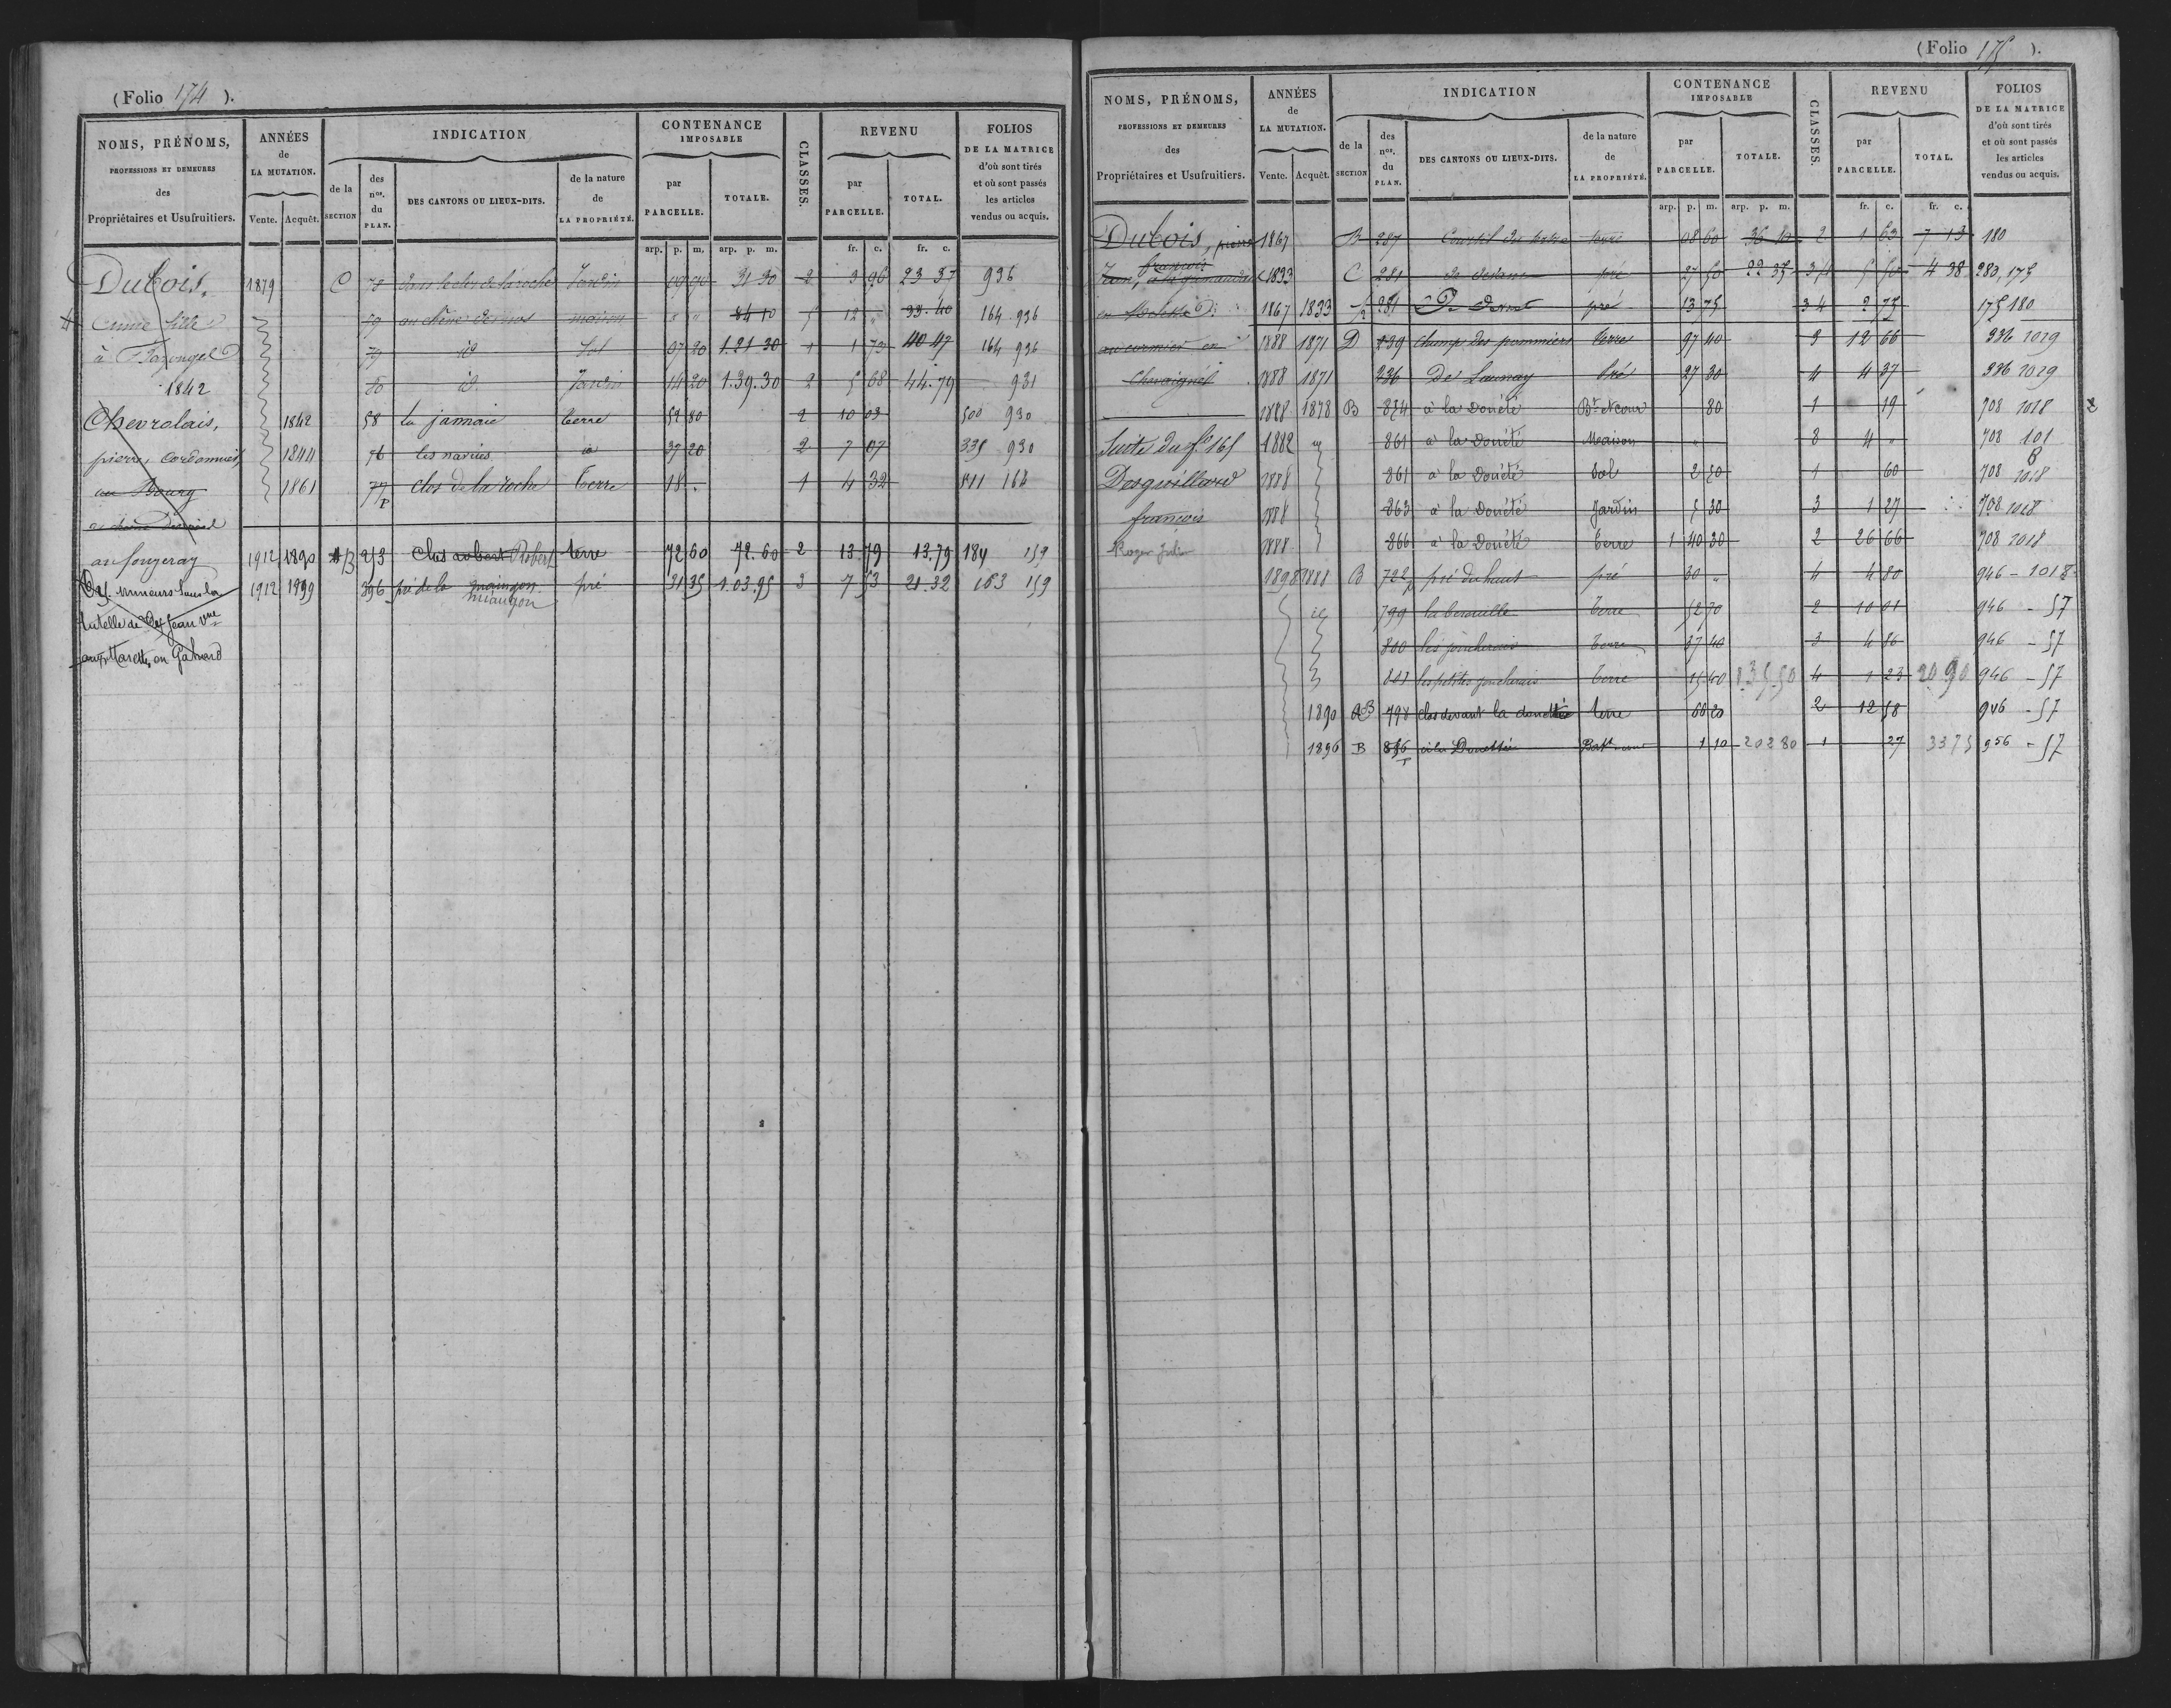 (Folio 174 ).
NOMS, PRÉNOMS,
PROFESSIONS ET DEMEURES
des
Propriétaires et Usufruitiers.
ANNÉES
de
LA MUTATION.
Vente. Acquêt.
INDICATION
de la SECTION
des nos. du PLAN.
DES CANTONS OU LIEUX-DITS.
de la nature de LA PROPRIÉTÉ.
CONTENANCE IMPOSABLE
par PARCELLE.
TOTALE.
CLASSES.
REVENU
par PARCELLE.
TOTAL.
FOLIOS
DE LA MATRICE
d'où sont tirés
et où sont passés
les articles
vendus ou acquis.
arp. p. m. arp. p. m. fr. c. fr. c.
Dubois, 1879 C 78 dans le clos de la roche Jardin 09 90 31 30 2 3 96 23 37 936
fille 59 au chêne maison 84 10 5 12 " 33.40 164 936
à 79 id Sol 07 20 1.21 30 1 1 73 40 47 164 936
1842 80 id. Jardin 14 20 1.39.30 2 5 68 44.79 931
Chevrolais, 1842 58 la jannaie terre 52 80 2 10 03 500 930
pierre, cordonnier 1844 76 les navries id 37 20 2 7 07 335 930
au Bourg 1861 77 p clos de la roche terre 18 . 1 4 32 511 164
au fougeray 1912 1890 B 253 Clos Robert terre 72 60 72.60 2 13 79 13.79 184 159
mineurs sous la 1912 1899 396 pré de la maingon miaugon pré 31 35 1.03.95 3 7 53 21.32 163 159
tutelle de Jean Vve
Marette, en Gahard
(Folio 175 ).
NOMS, PRÉNOMS,
PROFESSIONS ET DEMEURES
des
Propriétaires et Usufruitiers.
ANNÉES
de
LA MUTATION.
Vente. Acquêt.
INDICATION
de la SECTION
des nos. du PLAN.
DES CANTONS OU LIEUX-DITS.
de la nature de LA PROPRIÉTÉ.
CONTENANCE IMPOSABLE
par PARCELLE.
TOTALE.
CLASSES.
REVENU
par PARCELLE.
TOTAL.
FOLIOS
DE LA MATRICE
d'où sont tirés
et où sont passés
les articles
vendus ou acquis.
arp. p. m. arp. p. m. fr. c. fr. c.
Dubois, pierre 1867 B 287 Courtil du tertre terre 08 60 36 10 2 1 63 7 13 180
françois 1833 C 281 pré 27 50 22 35 3/4 5 50 4 38 280, 175
1867 1833 281 pré 13 75 3 4 2 75 175 180
au cormier en 1888 1871 D 239 Champ des pommiers terre 97 40 3 12 66 336 1029
Chevaigné 1888 1871 236 De Launay Pré 27 30 4 4 37 336 1029
1888 1878 B 854 à la Douété Bt et cour 80 1 19 708 1018
Suite du fo 165 1882 861 à la Douété Maison " 8 4 " 708 101 8
Desguillard 1888 861 à la Douété Sol 2 50 1 60 708 1018
françois 1888 863 à la Douété Jardin 5 30 3 1 27 708 1018
Roger Julie 1888 866 à la Douété terre 1 40 30 2 26 66 708 1018
1898 1888 B 722 p pré du haut pré 30 " 4 4 80 946 - 1018
id 799 terre 52 70 2 10 01 946 - 57
800 les joncherais terre 37 40 3 4 86 946 - 57
801 les petites joncherais terre 15 40 1.35.50 4 1 23 20 90 946 - 57
1890 B 798 clos devant la douettée terre 66 20 2 12 58 946 - 57
1896 B 856 Douettée Batt cour 1 10 202 80 1 27 33 75 956 - 57